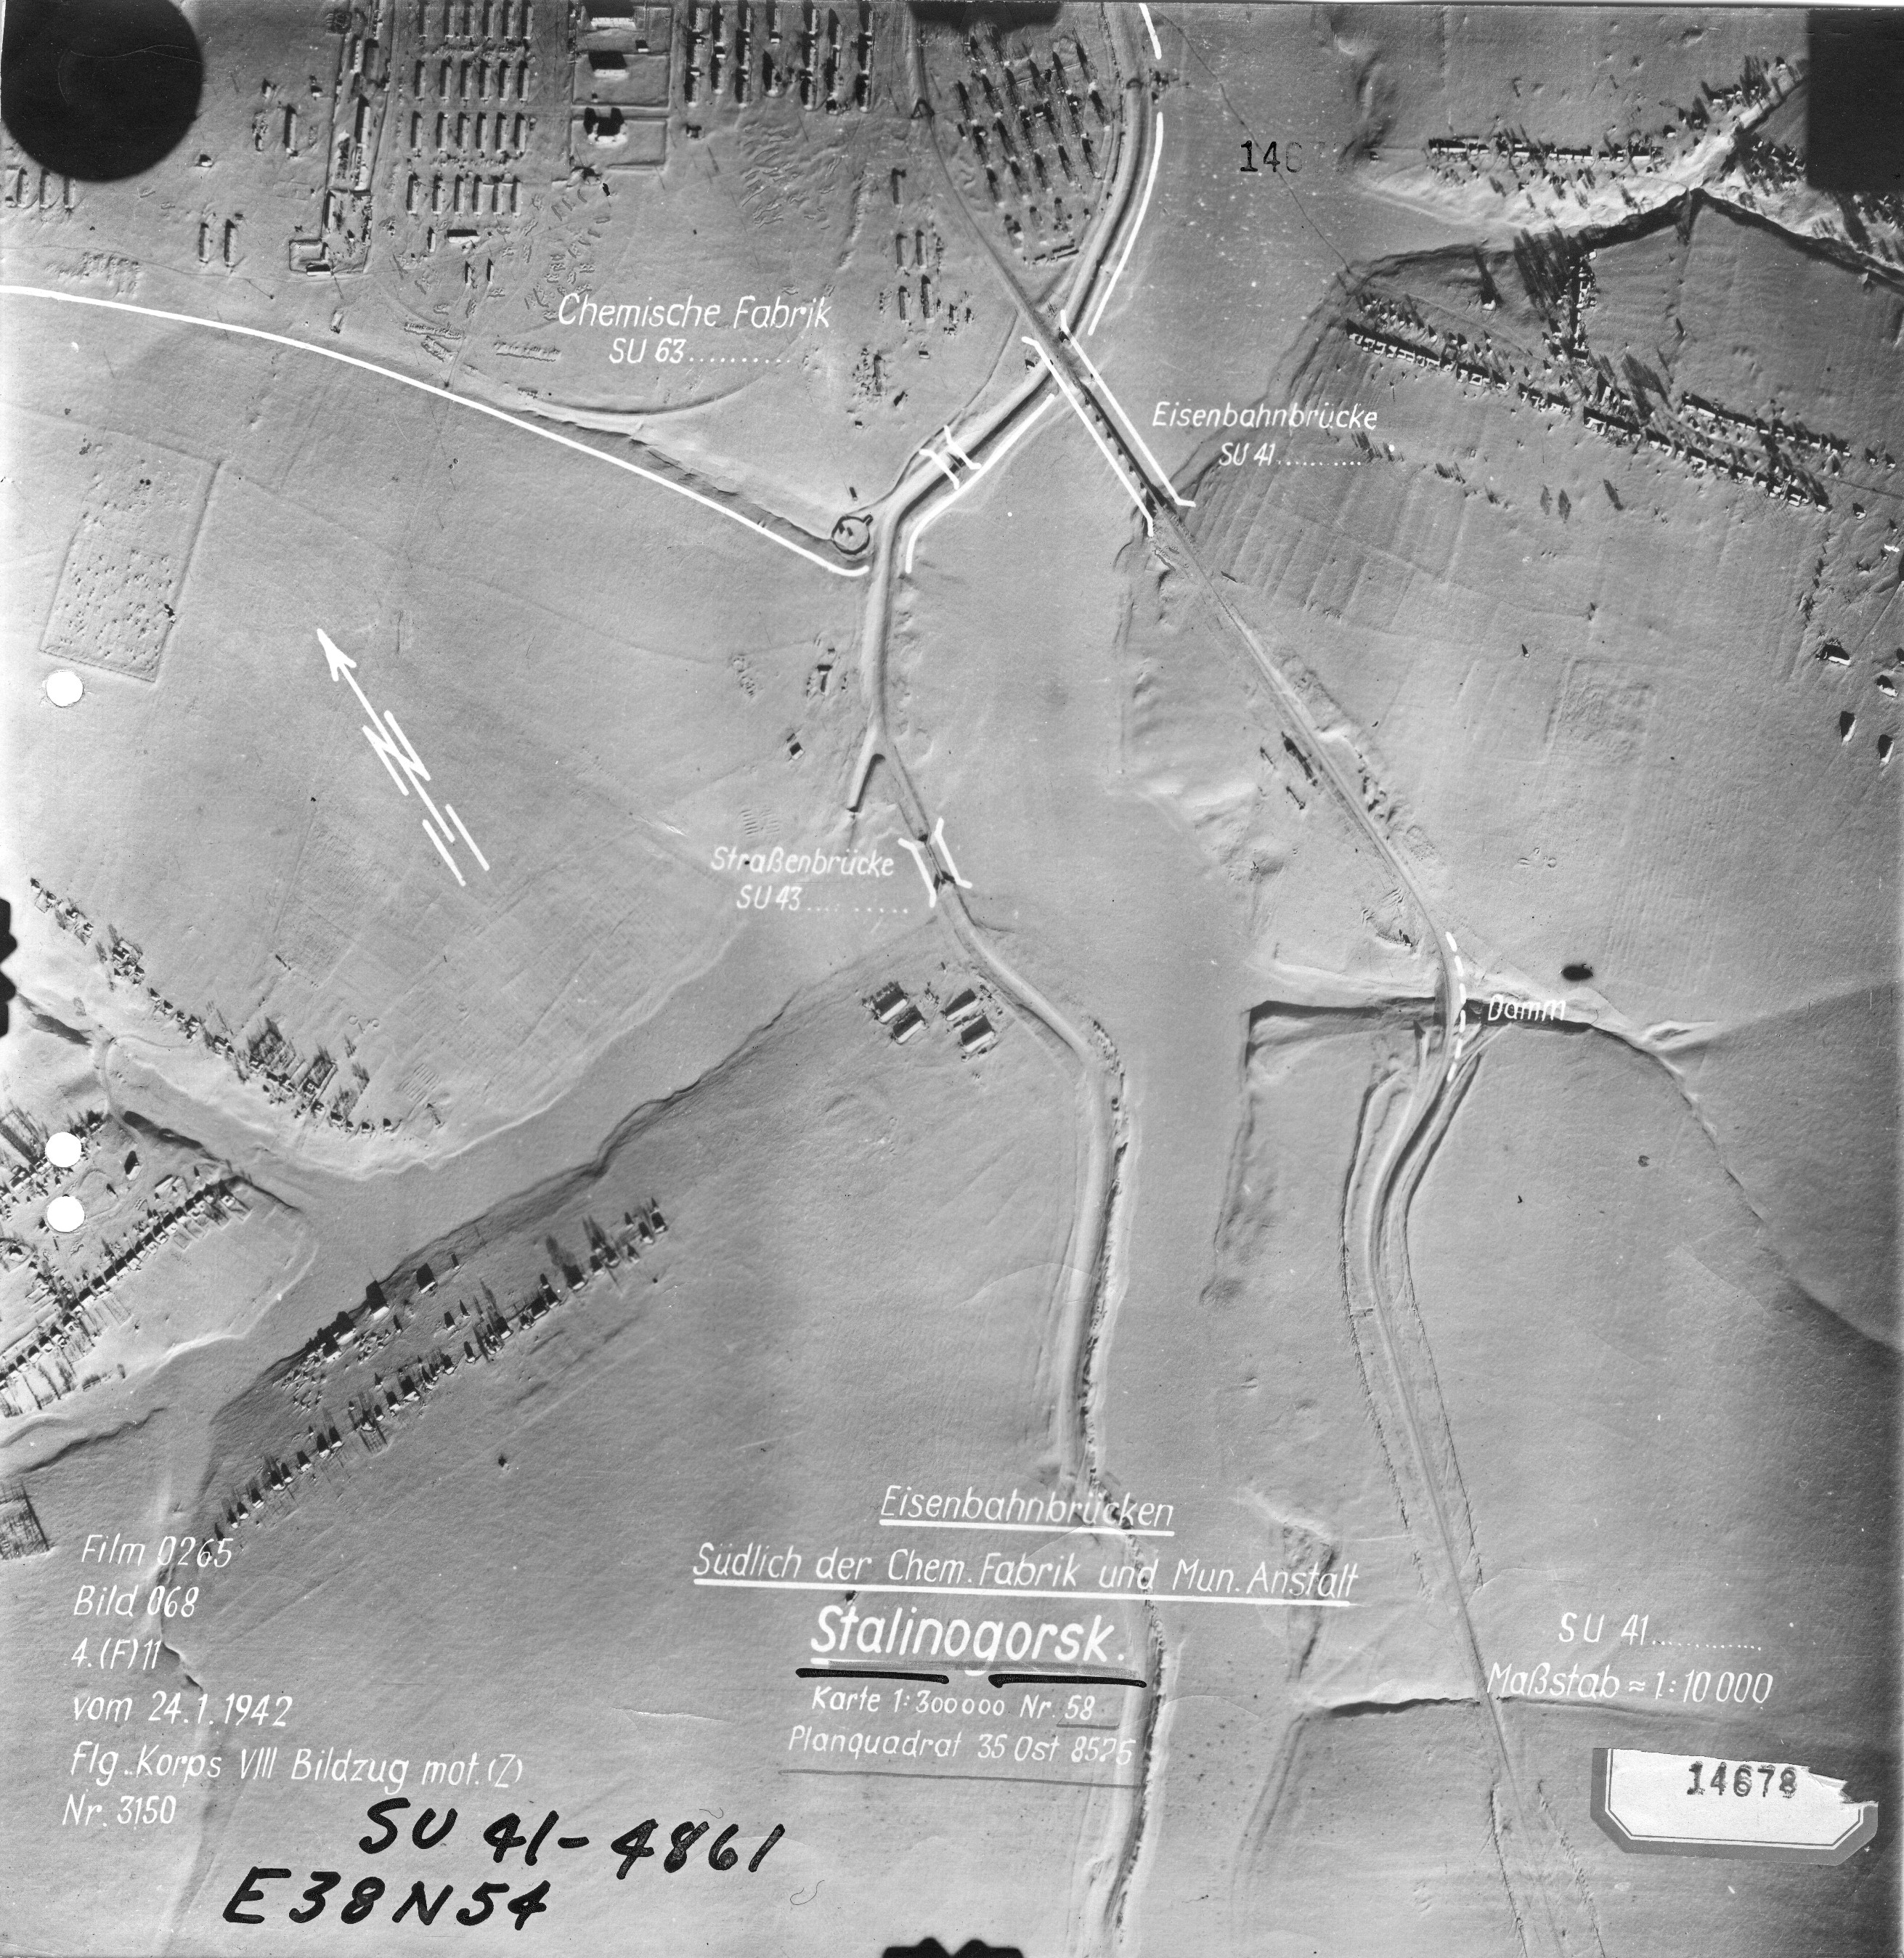 146
Chemische Fabrik
SU 63..........
Eisenbahnbrücke
SU 41..........
N
Straßenbrücke
SU 43..........
Damm
Eisenbahnbrücken
Südlich der Chem. Fabrik und Mun. Anstalt
Stalinogorsk.
Karte 1:300000 Nr. 58
Planquadrat 35 Ost 8525
Film 0265
Bild 068
4.(F)11
vom 24.1.1942
Flg. Korps VIII Bildzug mot.(Z)
Nr. 3150
SU 41.............
Maßstab ≈ 1:10 000
14678
SU 41-4861
E38N54